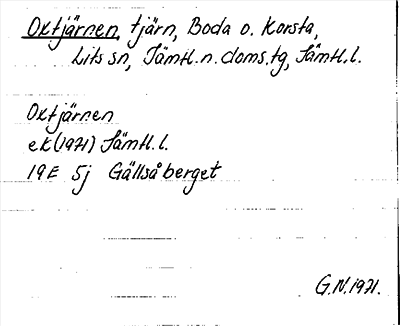 Oxtjärnen, tjärn, Boda o. Korsta,
Lits sn, Jämtl.n.doms.tg, Jämtl.l.
Oxtjärnen
ek(1971) Jämtl.l.
19E 5j Gällsåberget
G.N.1971.